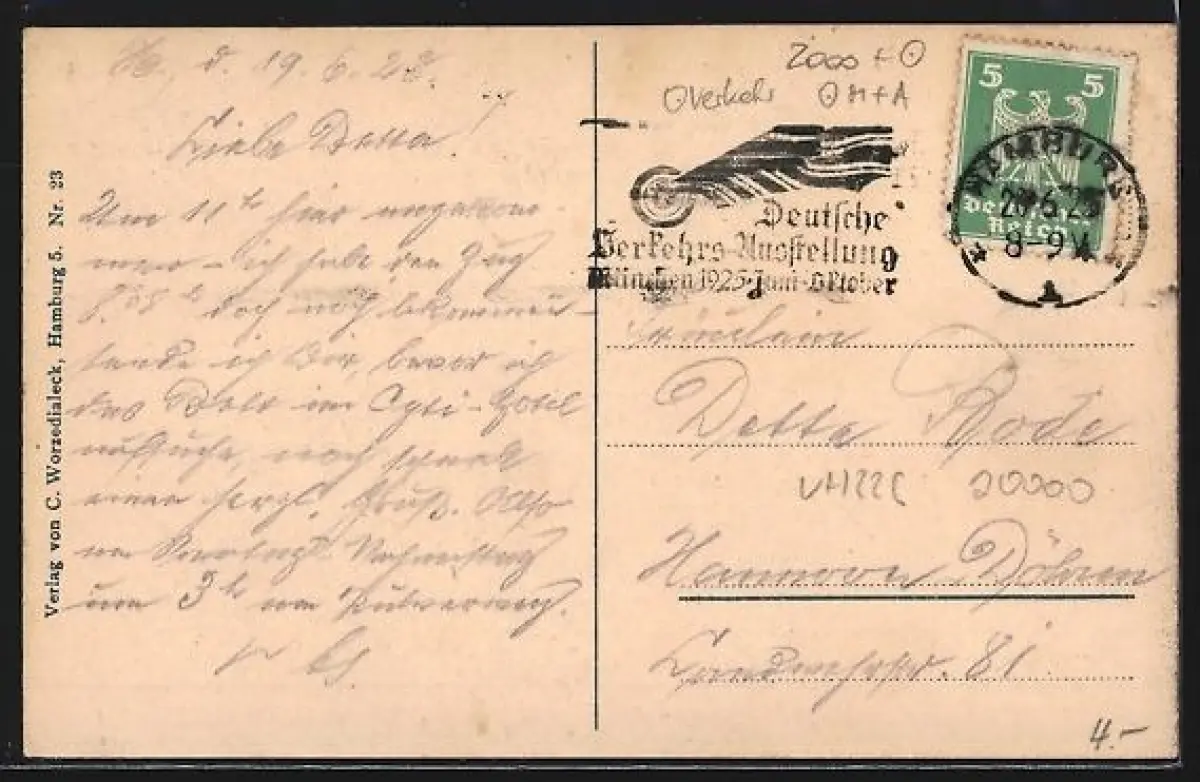 H., d. 19.6.25.
Liebe Detta!
Um 11 h hier angekom-
men – ich habe den Zug
8.05 h doch noch bekommen –
sende ich Dir, bevor ich
das Bett im City-Hotel
aufsuche, noch schnell
einen herzl. Gruß. Also
am Sonntag Nachmittag
um 3 h am Pulverweg.
Verlag von C. Worzedialeck, Hamburg 5. Nr. 23
2000 + O
Overkehr OM+A
Deutsche
Verkehrs-Ausstellung
München 1925 · Juni-Oktober
5 5
Deutsches
Reich
HAMBURG
20.6.25
8-9 V
1
Fräulein
Detta Rode
20000
Hannover Döhren
Landwehrstr. 81
4.-